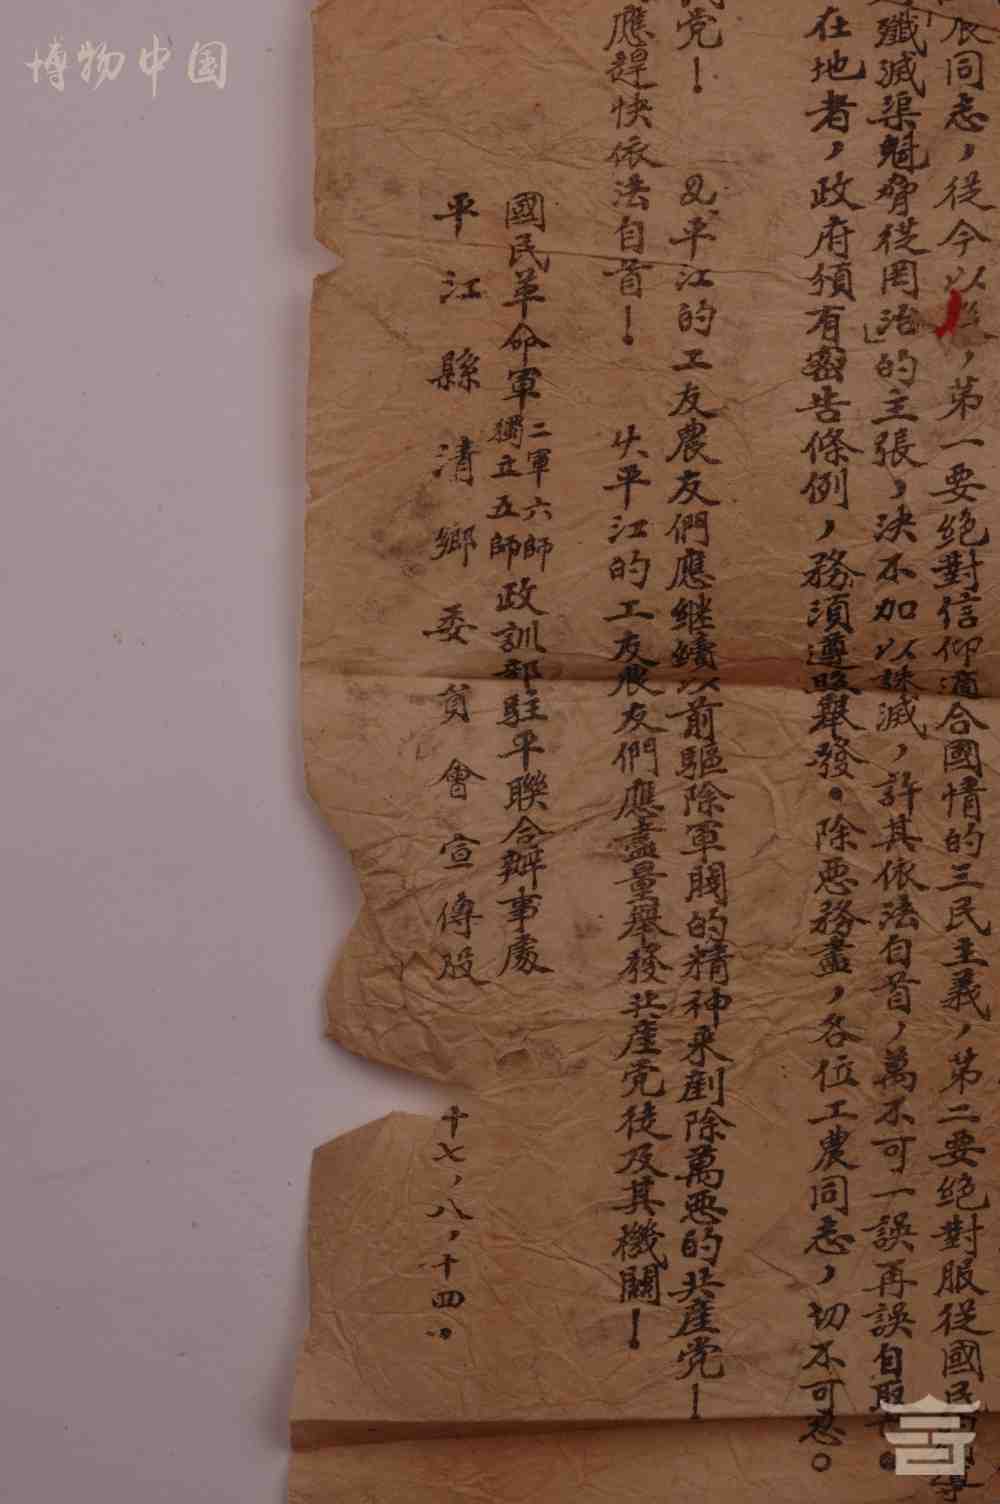 農同志，從今以後，第一要絕對信仰適合國情的三民主義，第二要絕對服從國民
殲滅渠魁脅從罔治」的主張，决不加以誅滅，許其依法自首，萬不可一誤再誤自取
在地者，政府頒有密告條例，務須遵照舉發。除惡務盡，各位工農同志，切不可忽。
党！ 又平江的工友農友們應継續以前驅除軍閥的精神来剷除萬惡的共產党！
應趕快依法自首！ 大平江的工友農友們應盡量舉發共產党徒及其機關！
國民革命軍二軍六師獨立五師政訓部駐平聯合辦事處
平江縣清鄉委員會宣傳股
十七，八，十四。
博物中国